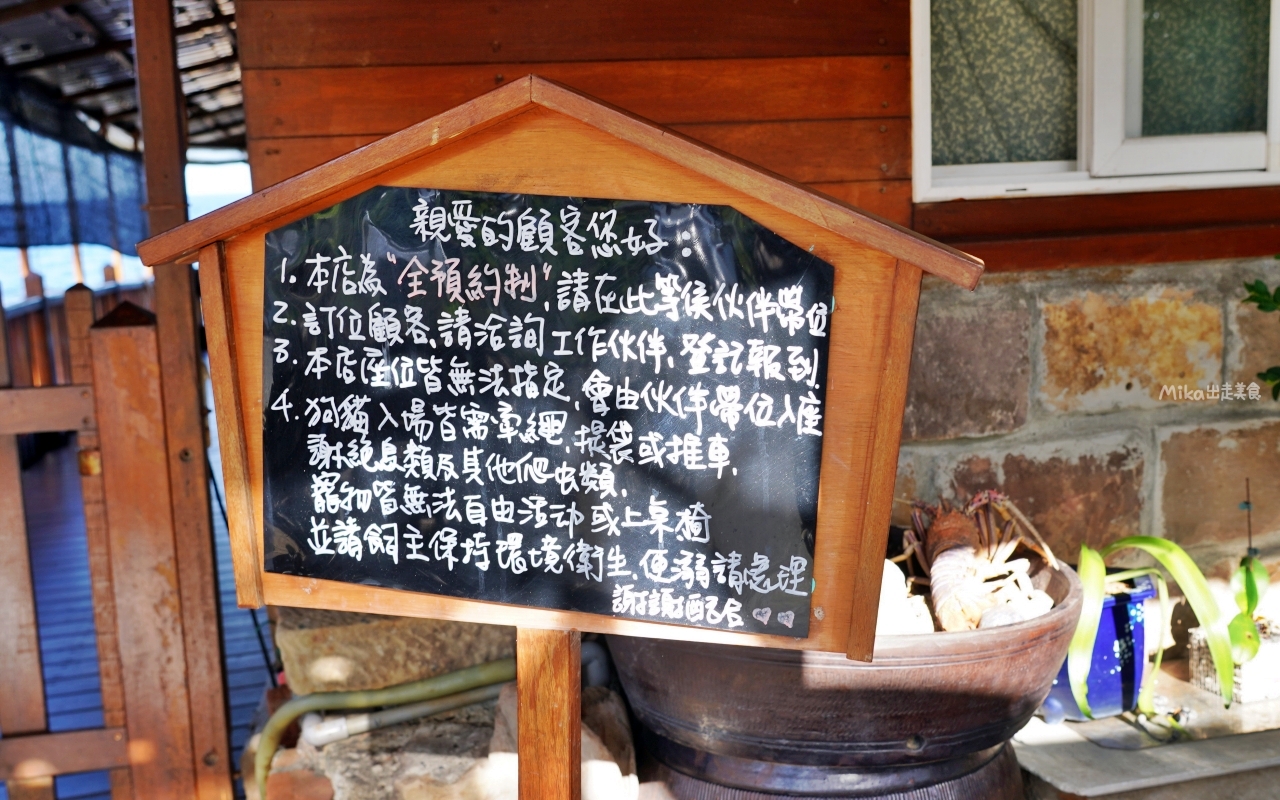 親愛的顧客您好：
1. 本店為"全預約制",請在此等侯伙伴帶位
2. 訂位顧客,請洽詢工作伙伴,登記報到.
3. 本店座位皆無法指定,會由伙伴帶位入座
4. 狗貓入場皆需牽繩,提袋或推車,
謝絕鳥類及其他爬虫類,
寵物皆無法自由活动或上桌椅
並請飼主保持環境衛生,便溺請處理
謝謝配合♡♡
Mika出走美食